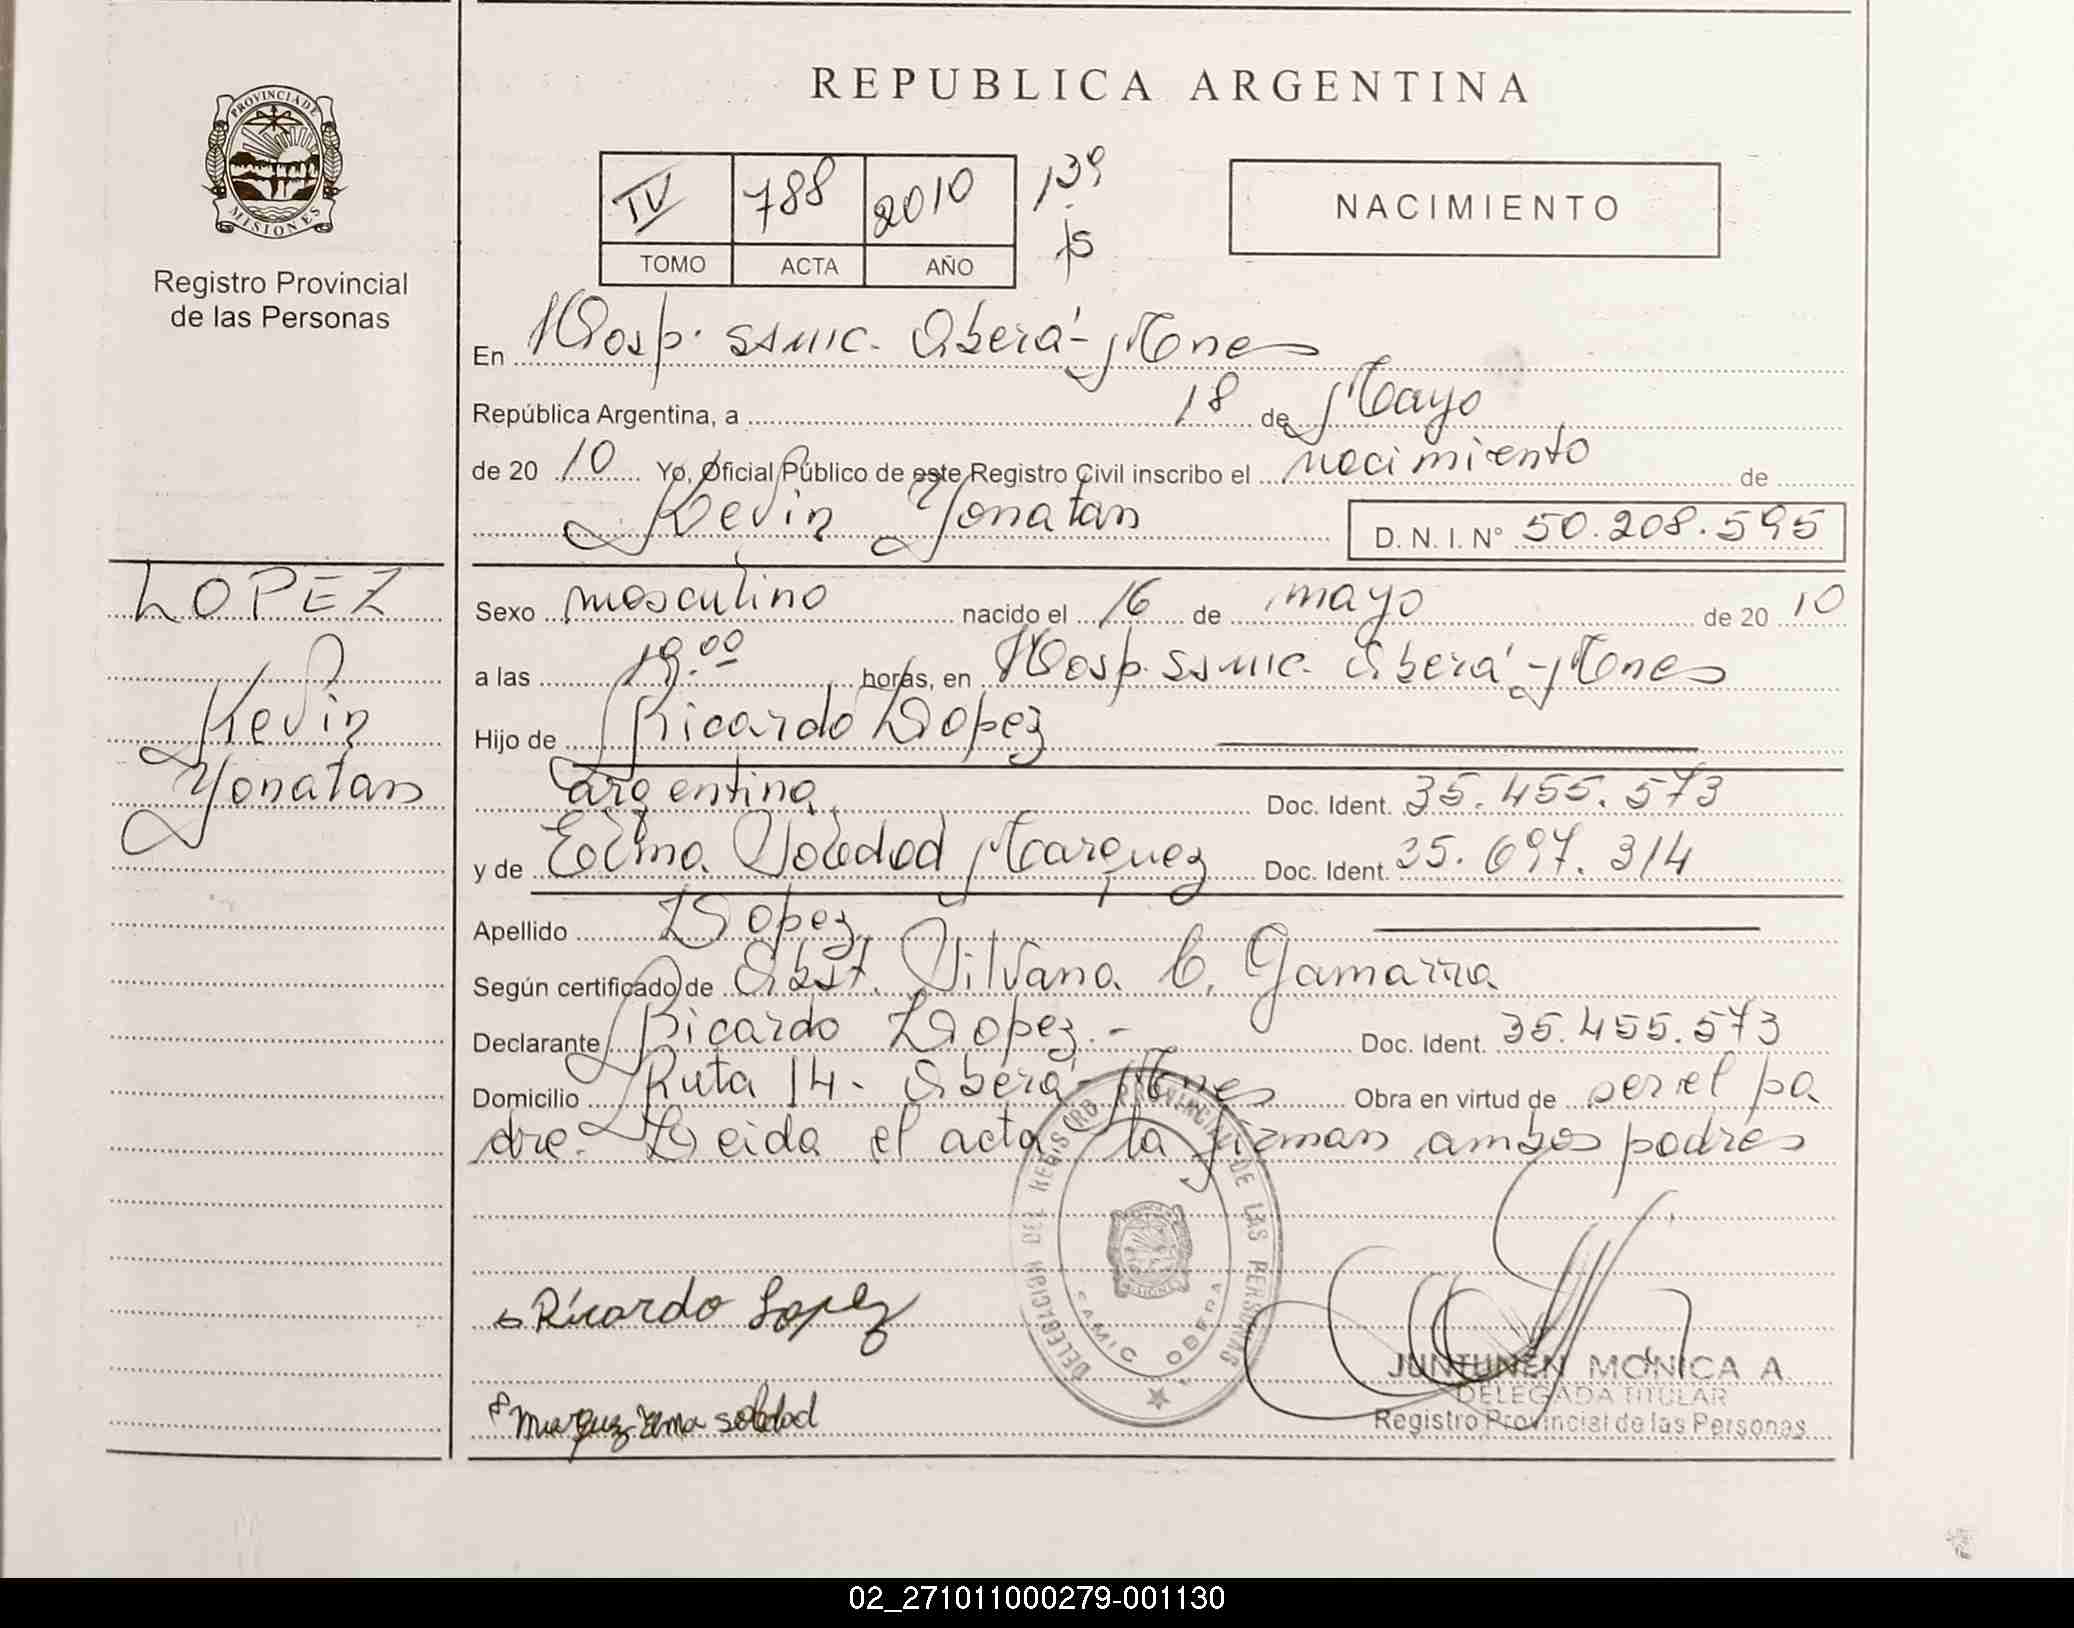 REPUBLICA ARGENTINA
PROVINCIA DE
MISIONES
Registro Provincial
de las Personas
IV 788 2010 139
TOMO ACTA AÑO
NACIMIENTO
En Hosp. SAMIC. Oberá - Mnes
República Argentina, a 18 de Mayo
de 20 10 Yo, Oficial Público de este Registro Civil inscribo el nacimiento de
Kevin Yonatan D. N. I. N° 50.208.595
LOPEZ
Kevin
Yonatan
Sexo masculino nacido el 16 de mayo de 20 10
a las 19.00 horas, en Hosp. SAMIC. Oberá - Mnes
Hijo de Ricardo Lopez
argentina Doc. Ident. 35.455.573
y de Soledad Marquez Doc. Ident. 35.697.314
Apellido Lopez
Según certificado de Obst. Silvana C. Gamarra
Declarante Ricardo Lopez.- Doc. Ident. 35.455.573
Domicilio Ruta 14 - Oberá - Mnes Obra en virtud de ser el pa
dre. Leida el acta la firman ambos padres
DELEGACION DEL REGISTRO PROVINCIAL DE LAS PERSONAS
SAMIC OBERA
Ricardo Lopez
soledad
JUNTUNEN MONICA A
DELEGADA TITULAR
Registro Provincial de las Personas
02_271011000279-001130